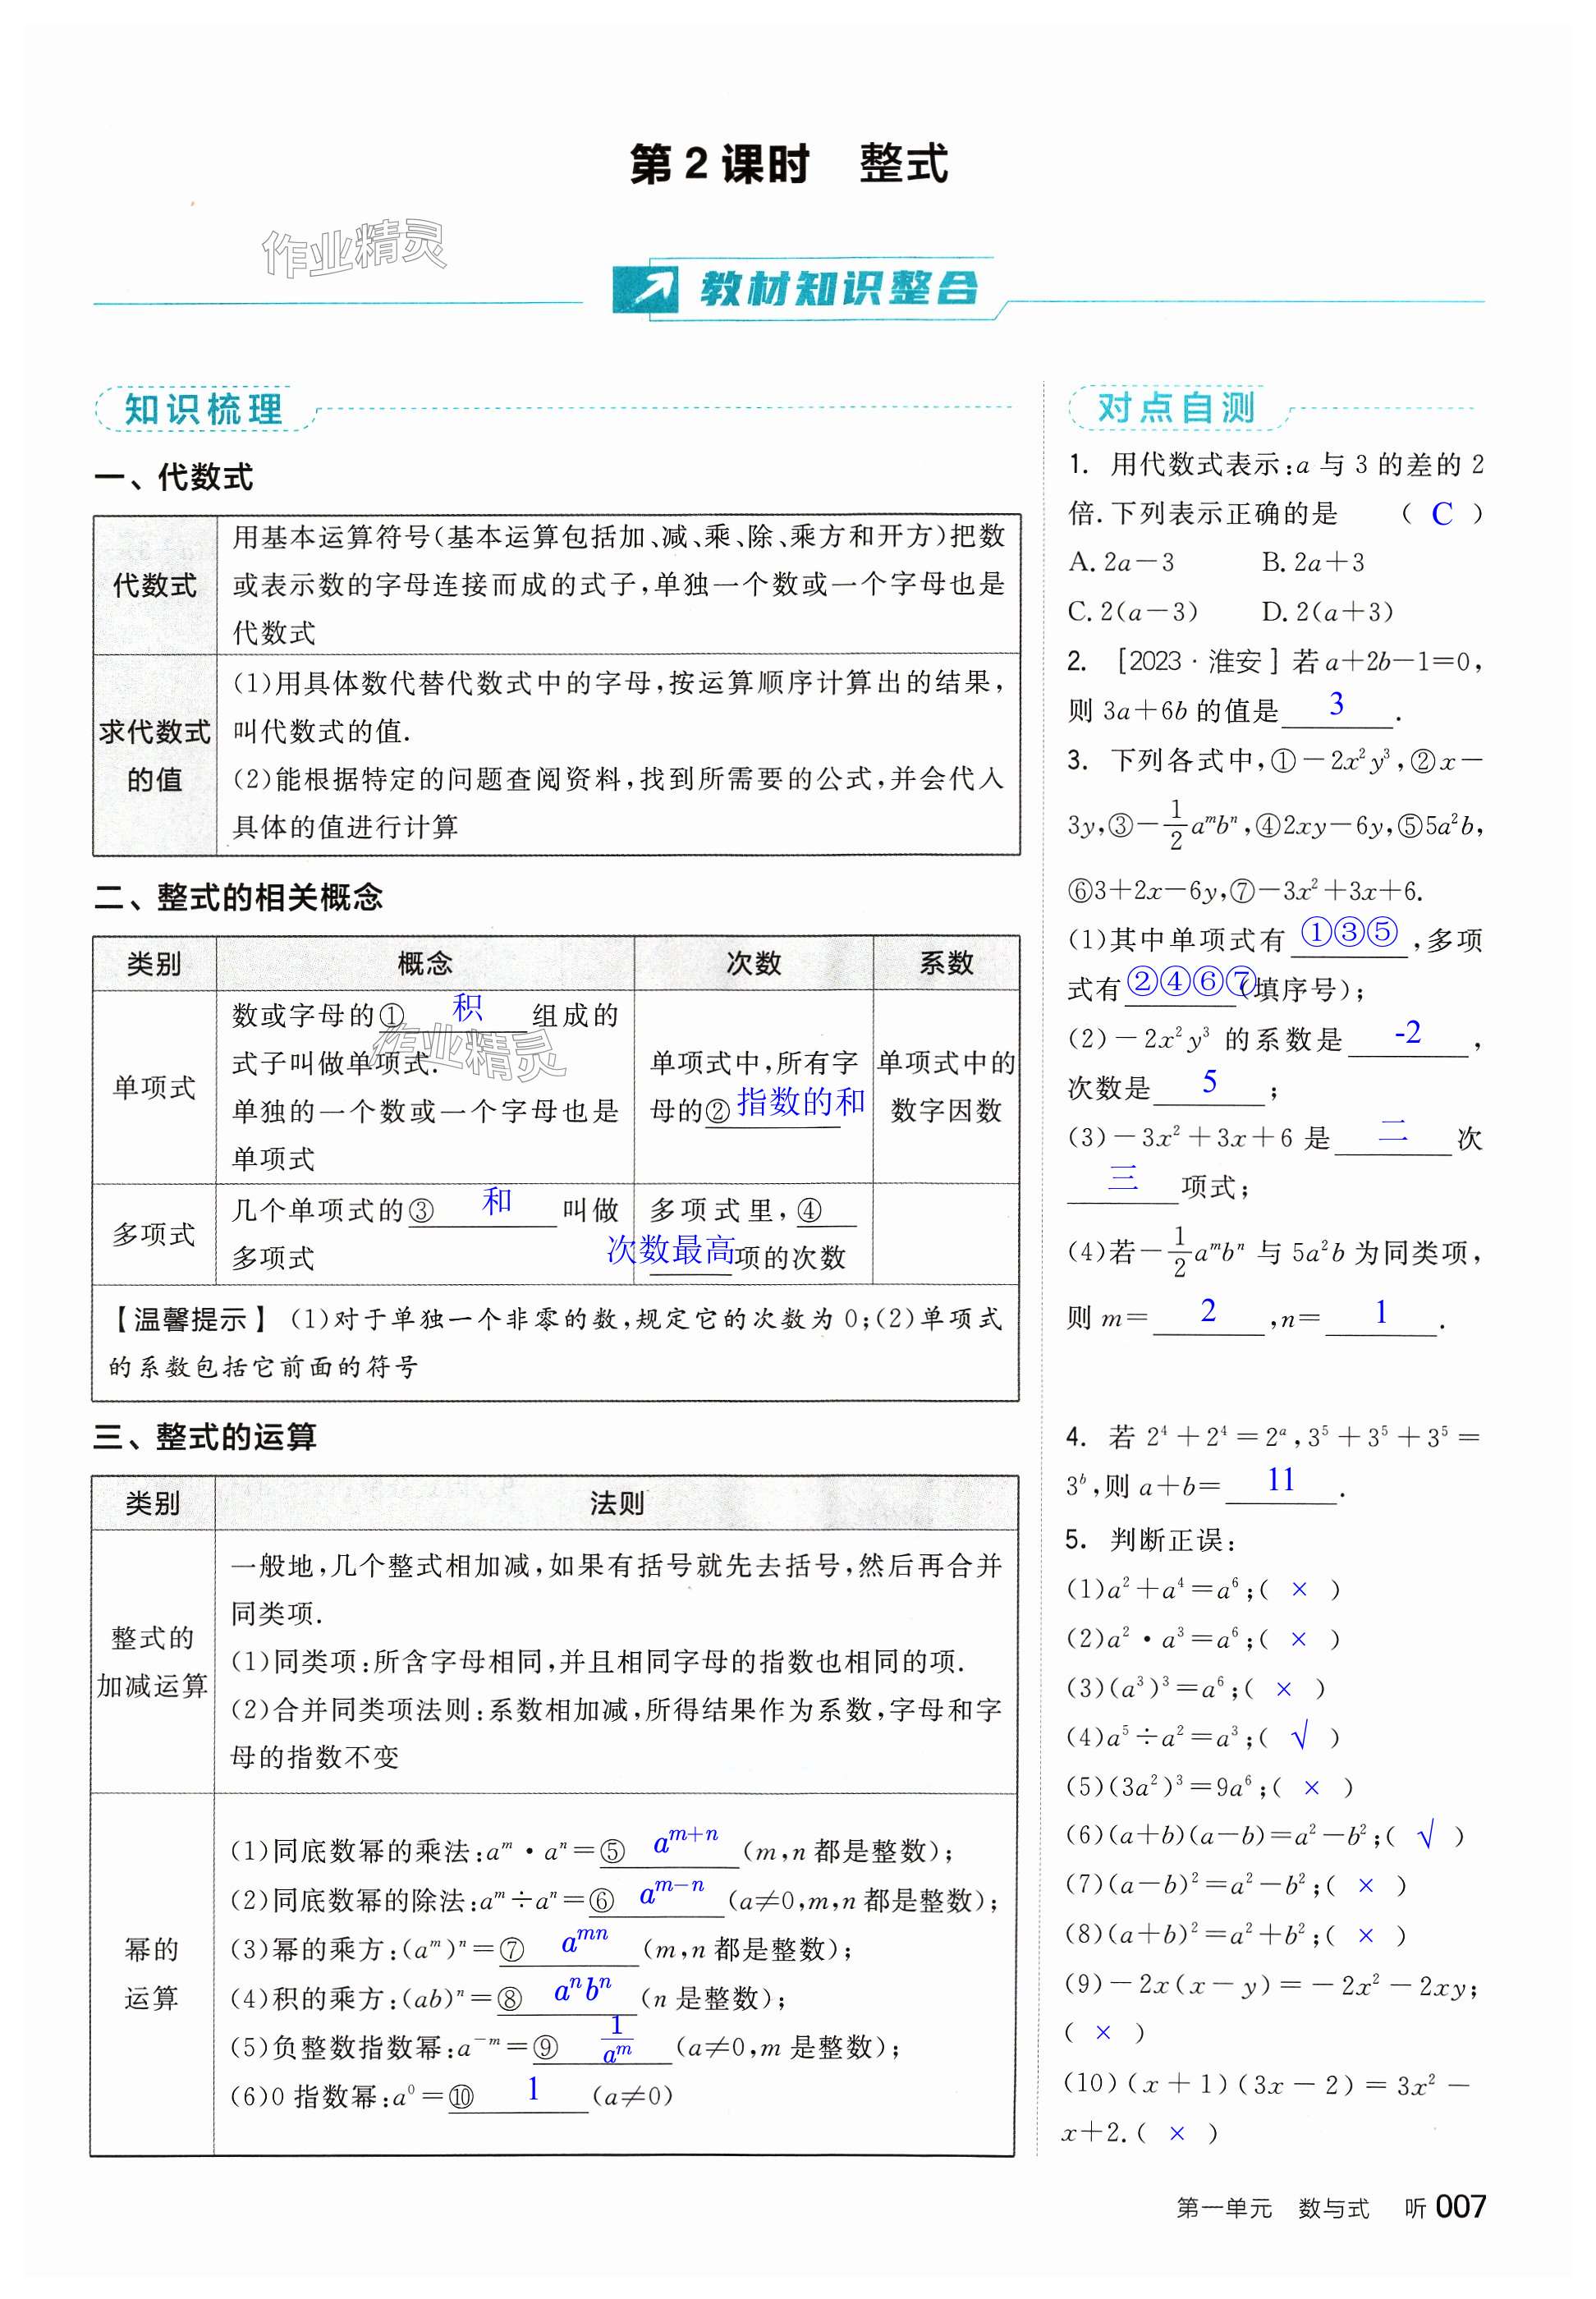 第2课时 整式
作业精灵
教材知识整合
知识梳理
一、代数式
代数式
用基本运算符号(基本运算包括加、减、乘、除、乘方和开方)把数
或表示数的字母连接而成的式子,单独一个数或一个字母也是
代数式
求代数式
的值
(1)用具体数代替代数式中的字母,按运算顺序计算出的结果,
叫代数式的值.
(2)能根据特定的问题查阅资料,找到所需要的公式,并会代入
具体的值进行计算
二、整式的相关概念
类别 概念 次数 系数
单项式
数或字母的① 积 组成的
式子叫做单项式.
单独的一个数或一个字母也是
单项式
作业精灵
单项式中,所有字
母的② 指数的和
单项式中的
数字因数
多项式
几个单项式的③ 和 叫做
多项式
多项式里,④
次数最高项的次数
【温馨提示】(1)对于单独一个非零的数,规定它的次数为0;(2)单项式
的系数包括它前面的符号
三、整式的运算
类别 法则
整式的
加减运算
一般地,几个整式相加减,如果有括号就先去括号,然后再合并
同类项.
(1)同类项:所含字母相同,并且相同字母的指数也相同的项.
(2)合并同类项法则:系数相加减,所得结果作为系数,字母和字
母的指数不变
幂的
运算
(1)同底数幂的乘法:a^m·a^n=⑤ a^{m+n} (m,n都是整数);
(2)同底数幂的除法:a^m÷a^n=⑥ a^{m-n} (a≠0,m,n都是整数);
(3)幂的乘方:(a^m)^n=⑦ a^{mn} (m,n都是整数);
(4)积的乘方:(ab)^n=⑧ a^n b^n (n是整数);
(5)负整数指数幂:a^{-m}=⑨ 1/a^m (a≠0,m是整数);
(6)0指数幂:a^0=⑩ 1 (a≠0)
对点自测
1. 用代数式表示:a与3的差的2
倍.下列表示正确的是 ( C )
A. 2a-3 B. 2a+3
C. 2(a-3) D. 2(a+3)
2. [2023·淮安]若a+2b-1=0,
则3a+6b的值是 3 .
3. 下列各式中,①-2x²y³,②x-
3y,③-1/2 a^m b^n,④2xy-6y,⑤5a²b,
⑥3+2x-6y,⑦-3x²+3x+6.
(1)其中单项式有 ①③⑤ ,多项
式有②④⑥⑦(填序号);
(2)-2x²y³的系数是 -2 ,
次数是 5 ;
(3)-3x²+3x+6是 二 次
三 项式;
(4)若-1/2 a^m b^n与5a²b为同类项,
则m= 2 ,n= 1 .
4. 若2⁴+2⁴=2^a,3⁵+3⁵+3⁵=
3^b,则a+b= 11 .
5. 判断正误:
(1)a²+a⁴=a⁶;( × )
(2)a²·a³=a⁶;( × )
(3)(a³)³=a⁶;( × )
(4)a⁵÷a²=a³;( √ )
(5)(3a²)³=9a⁶;( × )
(6)(a+b)(a-b)=a²-b²;( √ )
(7)(a-b)²=a²-b²;( × )
(8)(a+b)²=a²+b²;( × )
(9)-2x(x-y)=-2x²-2xy;
( × )
(10)(x+1)(3x-2)=3x²-
x+2.( × )
第一单元 数与式 听007